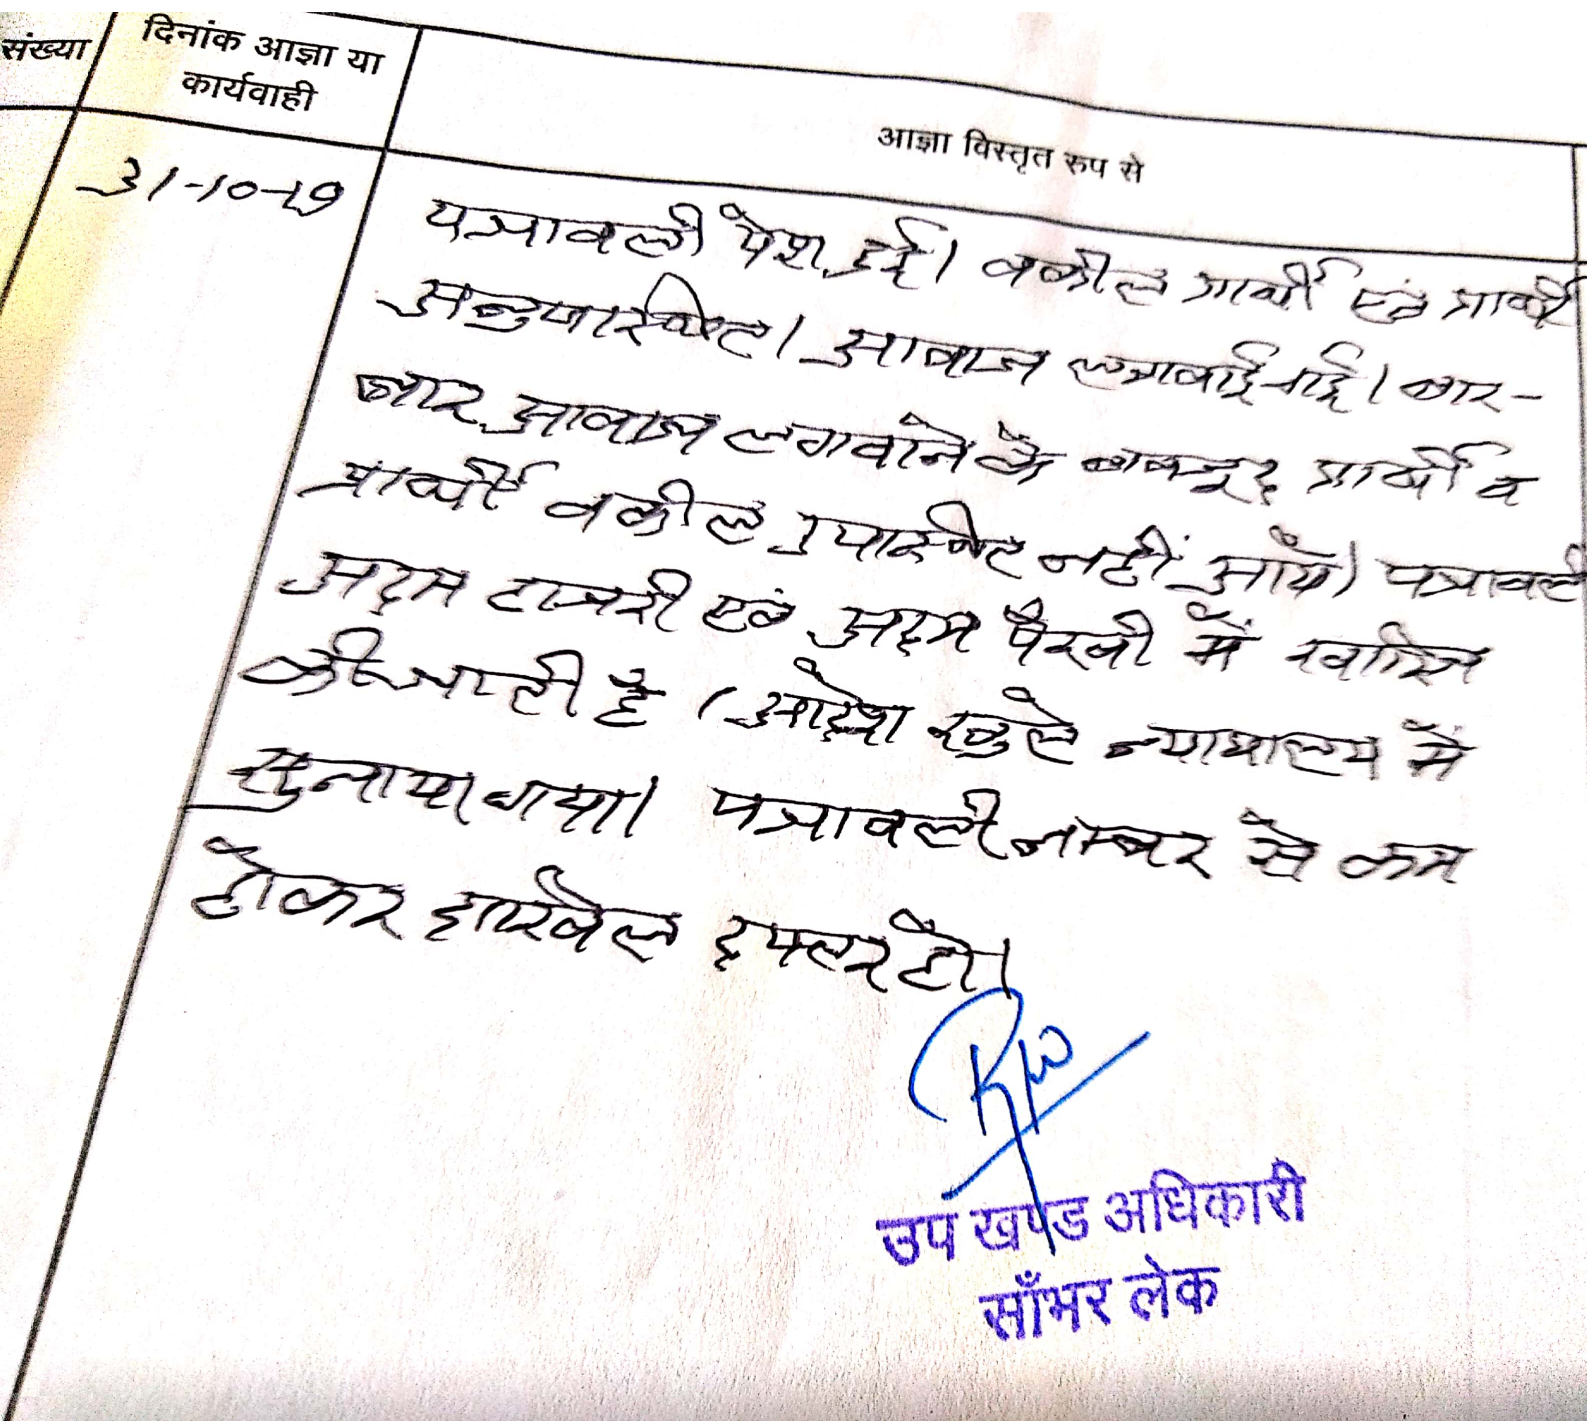 संख्या
दिनांक आज्ञा या
कार्यवाही
आज्ञा विस्तृत रुप से
31-10-19
पत्रावली पेश हुई। वकील प्रार्थी एवं प्रार्थी
अनुपस्थित। आवाज लगवाई गई। बार-
बार आवाज लगवाने के बावजूद प्रार्थी व
प्रार्थी वकील उपस्थित नहीं आये। पत्रावली
अदम हाजरी एवं अदम पैरवी में खारिज
की जाती है। आदेश खुले न्यायालय में
सुनाया गया। पत्रावली नम्बर से कम
होकर दाखिल दफ्तर हो।
उप खण्ड अधिकारी
साँभर लेक